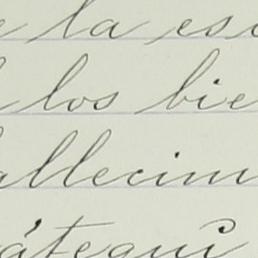 la es
los bie
allecim
átegui